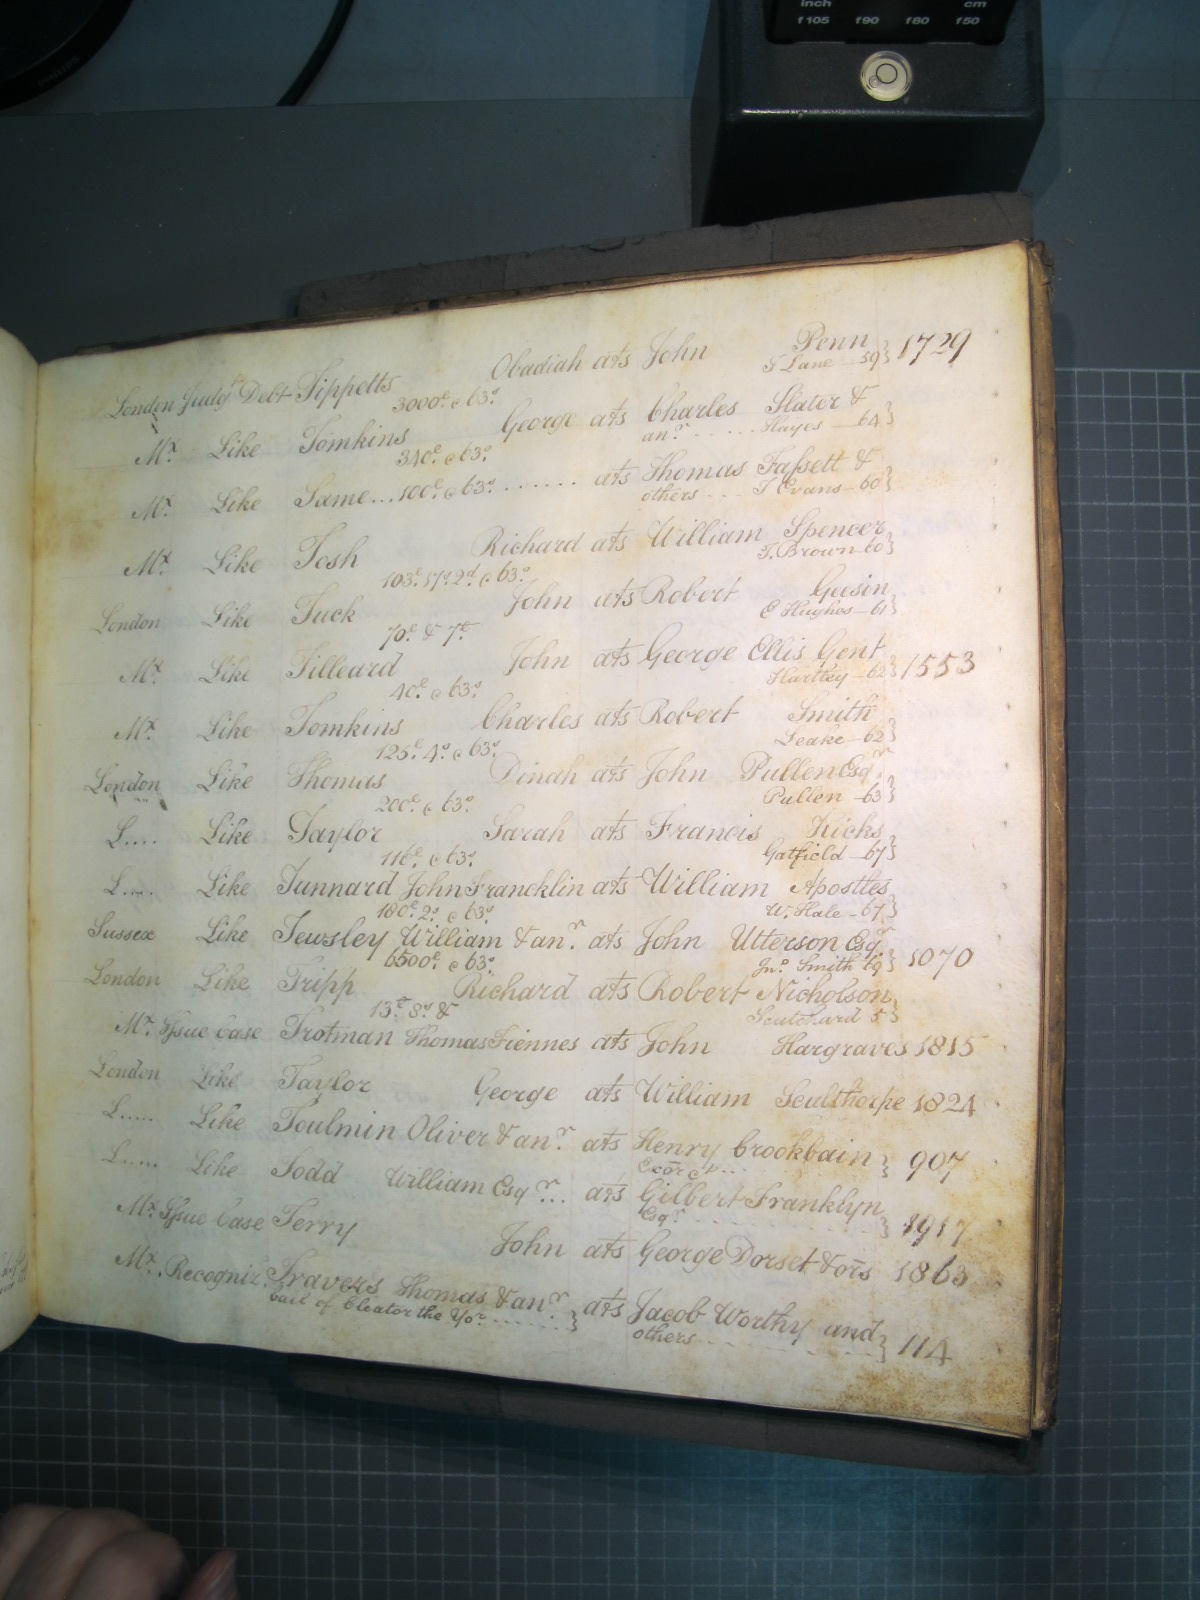 inch cm
f105 f90 f80 f50
London Judgt Debt Tippetts Obadiah ats John Penn } 1729
3000£ c 63s T Lane - 59
Mx Like Tomkins George ats Charles Slater &
340£ c 63s anr .... Hayes - 64 }
Mx Like Same... 100£ c 63s ....... ats Thomas Fassett &
others .. T Evans - 60 }
Mx Like Tosh Richard ats William Spencer
103£ 17s 2d c 63s T. Brown - 60 }
London Like Tuck John ats Robert Geesin
70£ & 7£ C Hughes - 61 }
Mx Like Tilleard John ats George Ellis Gent
40£ c 63s Hartley - 62 } 1553
Mx Like Tomkins Charles ats Robert Smith
125£ 4s c 63s Leake - 62 }
London Like Thomas Dinah ats John Pullen Esqr
200£ c 63s Pullen - 63 }
L.... Like Taylor Sarah ats Francis Hicks
116£ c 63s Gatfield - 67 }
L.... Like Tunnard John Francklin ats William Apostles
180£ 2s c 63s W. Hale - 67 }
Sussex Like Tewsley William & anr ats John Utterson Esqr
6500£ c 63s Jno Smith 69 } 1070
London Like Tripp Richard ats Robert Nicholson
13£ 8s & Scutchard 5 }
Mx Issue Case Trotman Thomas Fiennes ats John Hargraves 1815
London Like Taylor George ats William Sculthorpe 1824
L..... Like Toulmin Oliver & anr ats Henry Crookbain } 907
L..... Like Todd William Esqr ... ats Gilbert Franklyn
Esqr } 1917
Mx Issue Case Terry John ats George Dorset & ors 1863
Mx Recogniz. Travers Thomas & anr } ats Jacob Worthy and
bail of Cleator the Yor ....... others ..... } 114